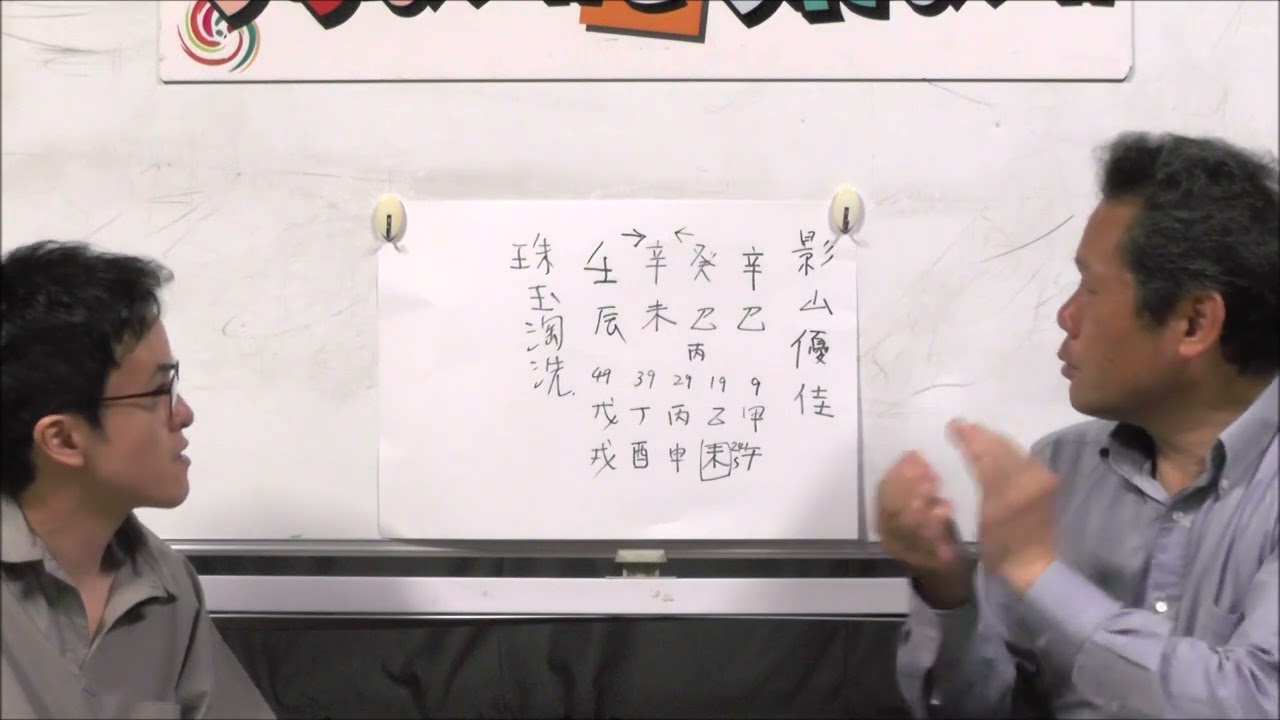 影山優佳
辛 癸 辛 壬
巳 巳 未 辰
丙
9 19 29 39 49
甲 乙 丙 丁 戊
午 未 申 酉 戌
珠玉淘洗